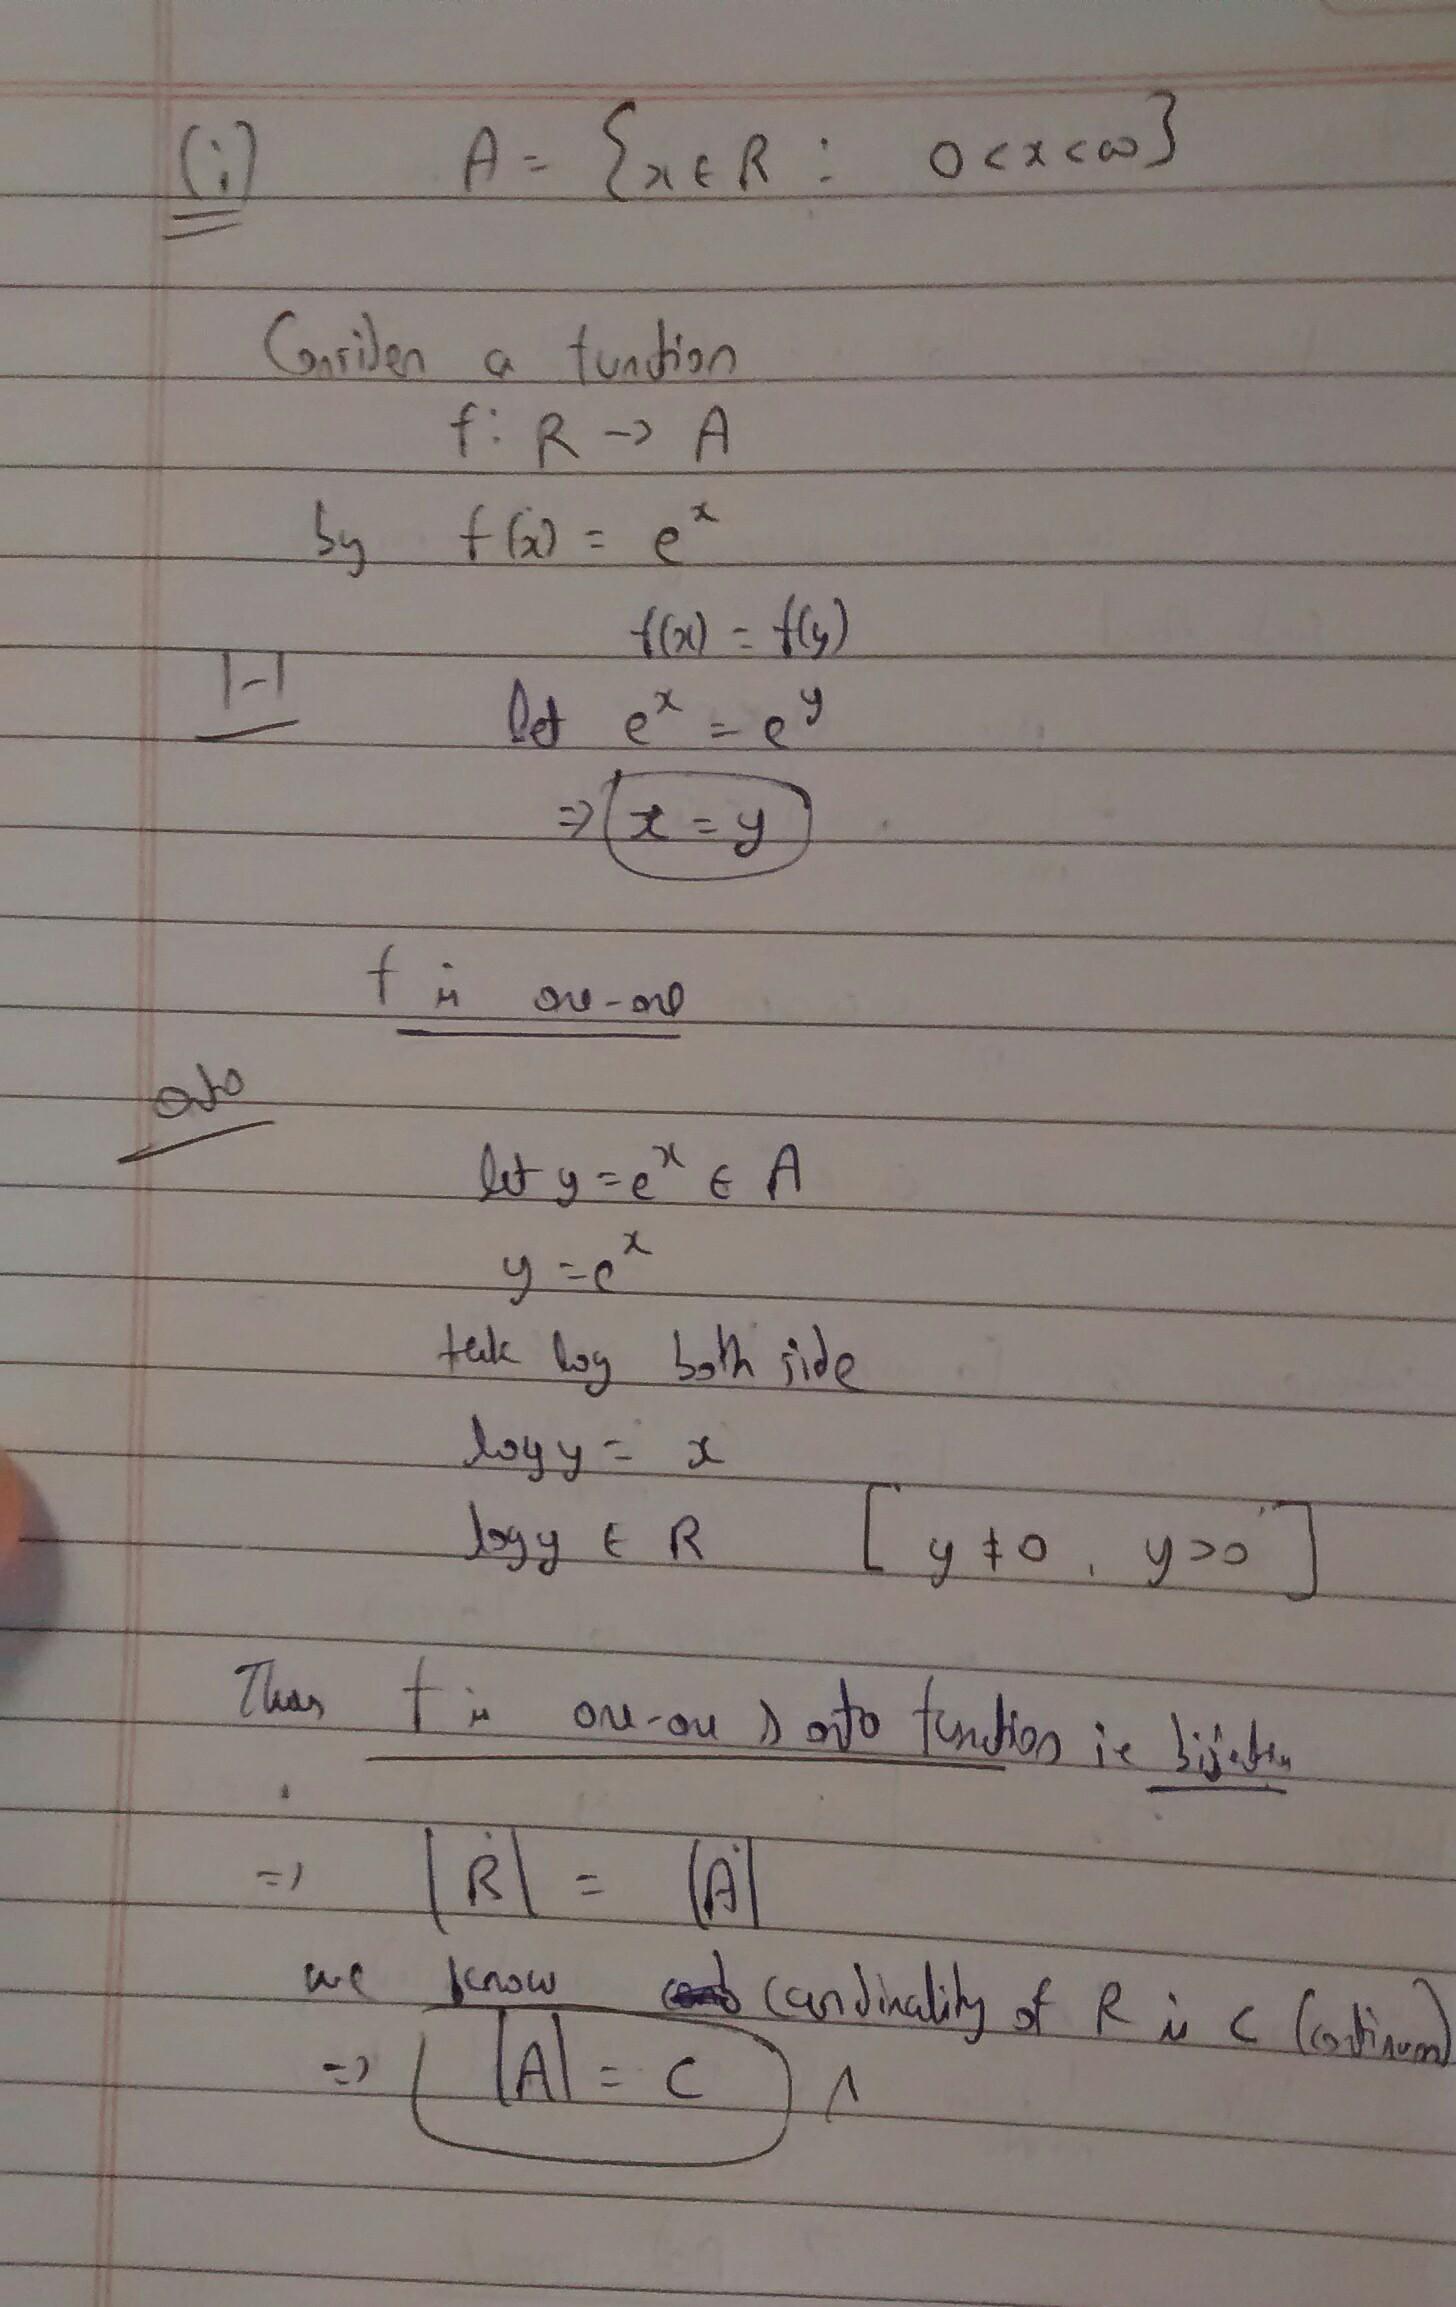 (i) A = {x ∈ R : 0 < x < ∞}
Consider a function
f: R → A
by f(x) = e^x
f(x) = f(y)
1-1 let e^x = e^y
⇒ x = y
f is one-one
onto
let y = e^x ∈ A
y = e^x
take log both side
log y = x
log y ∈ R [y ≠ 0, y > 0]
Thus f is one-one & onto function ie bijection
⇒ |R| = |A|
we know cardinality of R is C (continum)
⇒ |A| = C